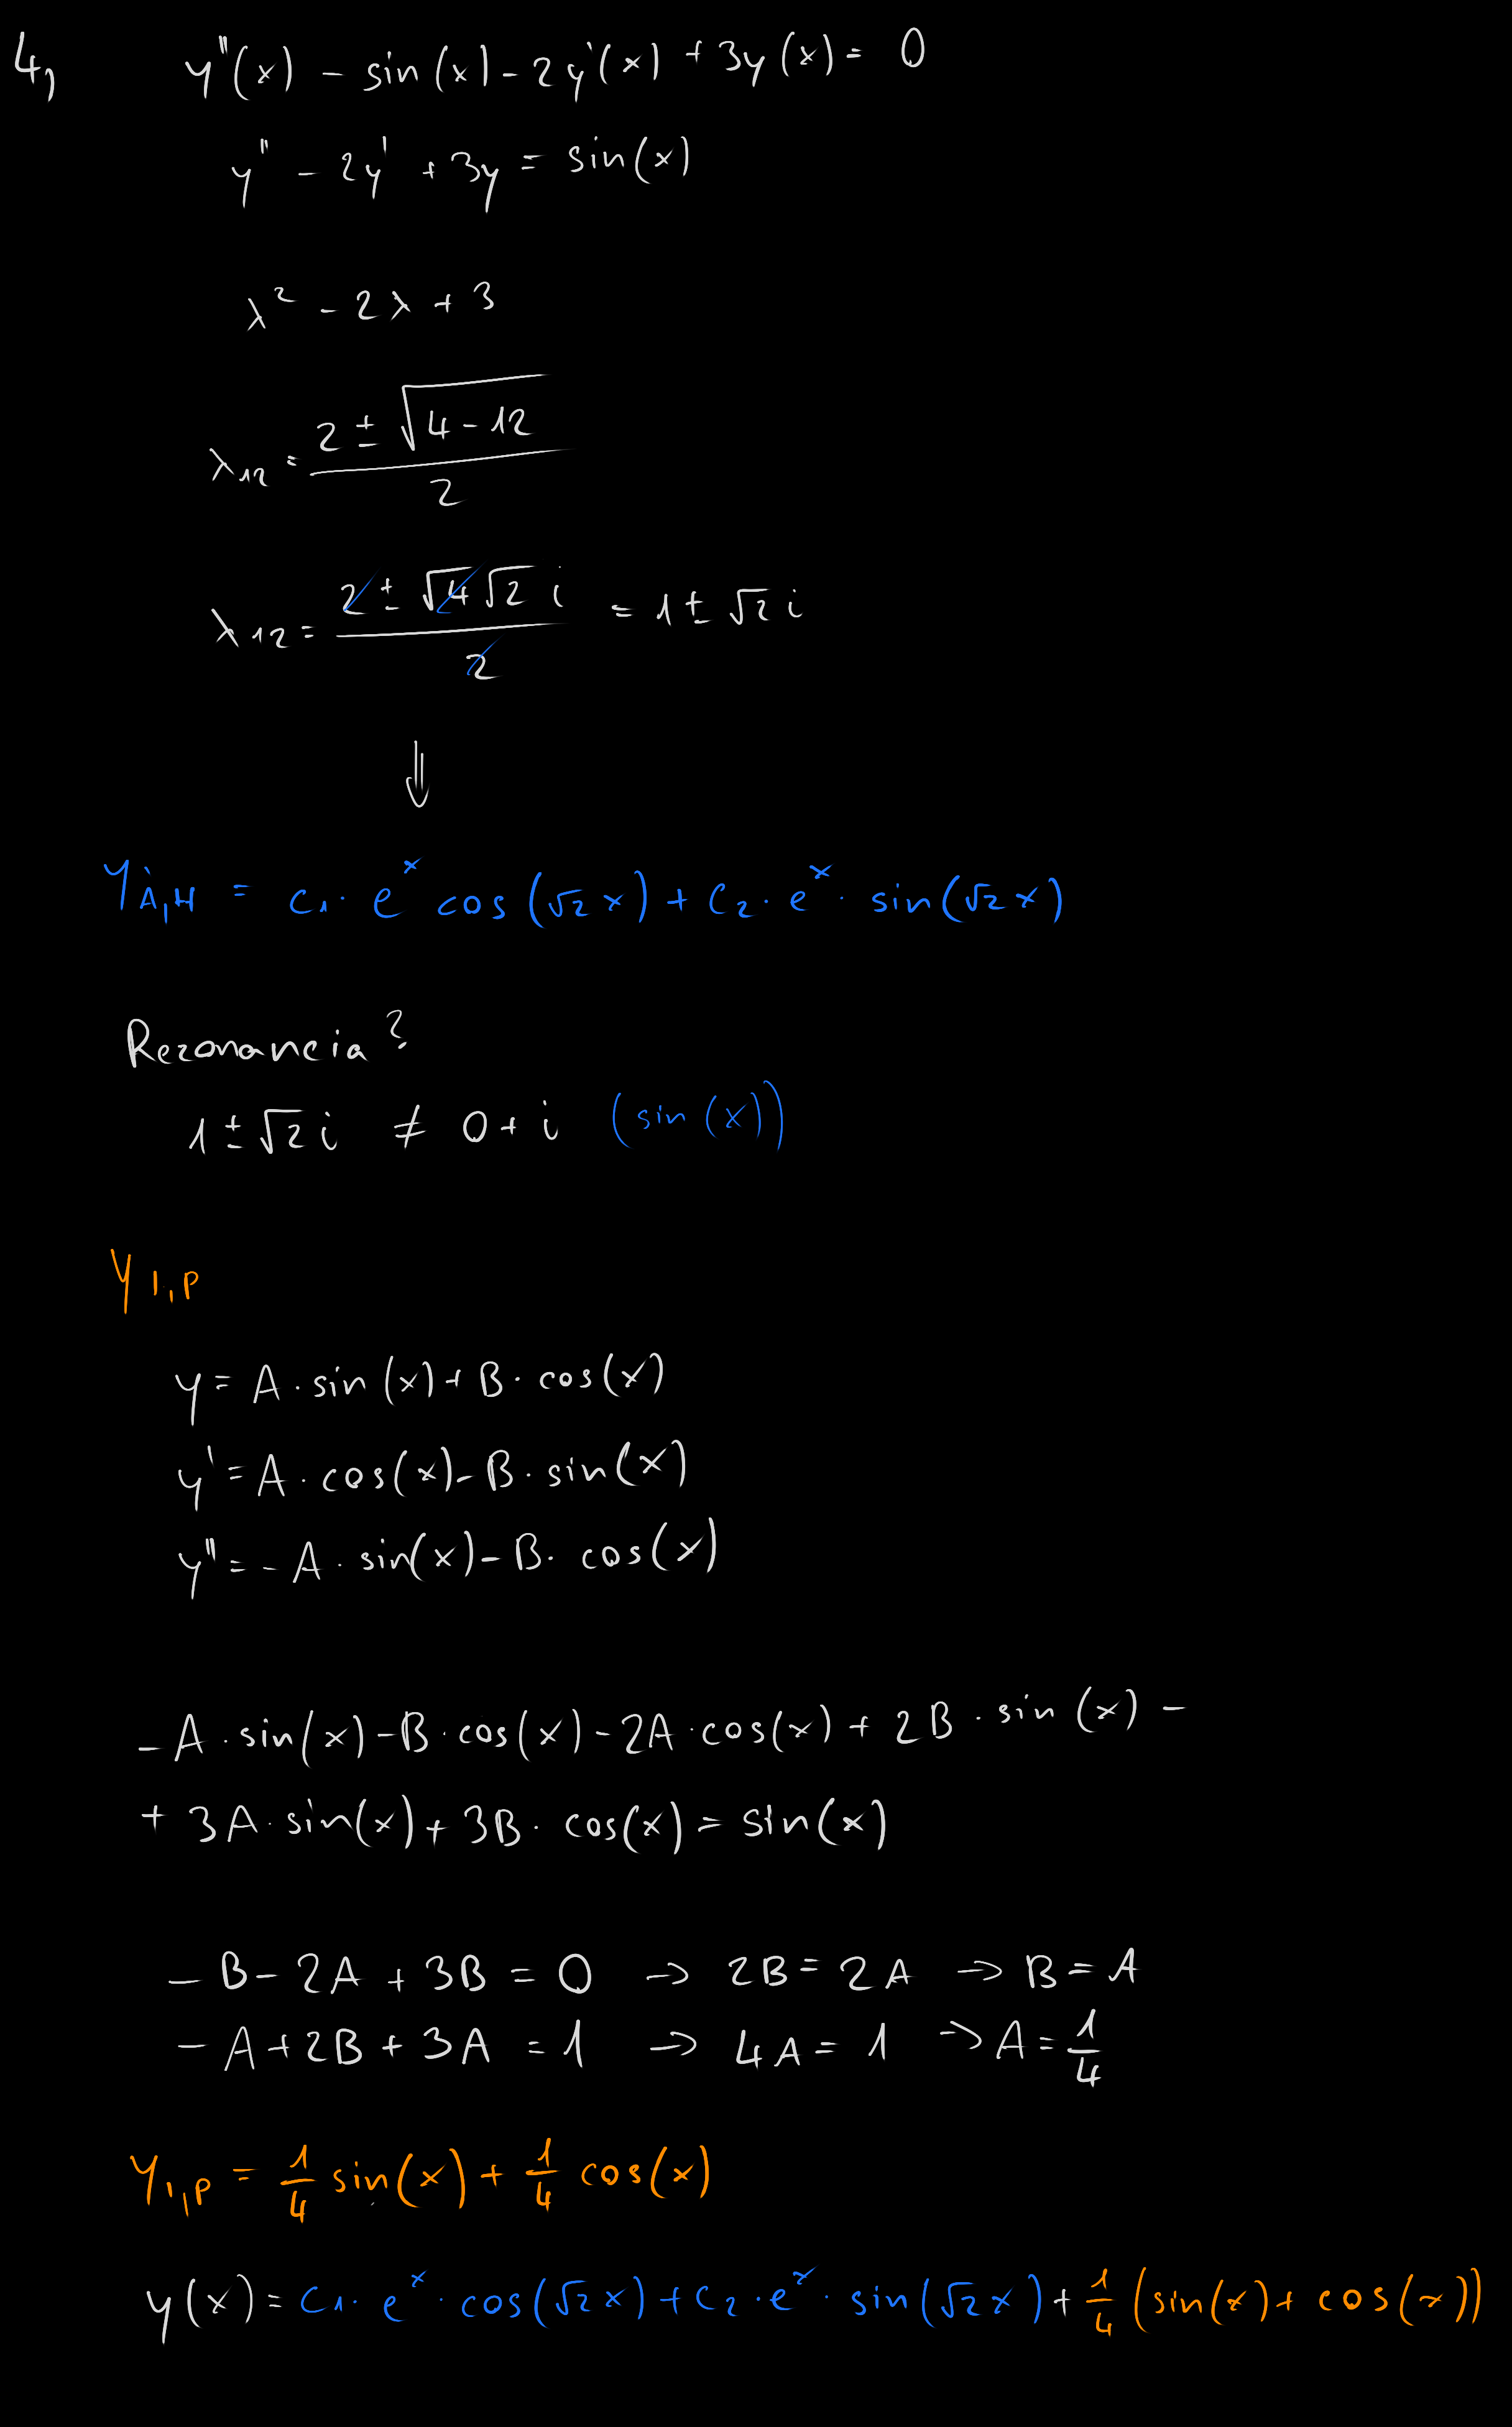 4, y''(x) - sin(x) - 2y'(x) + 3y(x) = 0
y'' - 2y' + 3y = sin(x)
λ² - 2λ + 3
λ₁₂ = (2 ± √(4-12)) / 2
λ₁₂ = (2 ± √4 √2 i) / 2 = 1 ± √2 i
⇓
Y_Á,H = C₁ · eˣ cos(√2 x) + C₂ · eˣ · sin(√2 x)
Rezonancia?
1 ± √2 i ≠ 0 + i (sin(x))
Y_I,P
y = A · sin(x) + B · cos(x)
y' = A · cos(x) - B · sin(x)
y'' = - A · sin(x) - B · cos(x)
- A · sin(x) - B · cos(x) - 2A · cos(x) + 2B · sin(x) -
+ 3A · sin(x) + 3B · cos(x) = sin(x)
- B - 2A + 3B = 0 → 2B = 2A → B = A
- A + 2B + 3A = 1 → 4A = 1 → A = 1/4
Y_I,P = 1/4 sin(x) + 1/4 cos(x)
y(x) = C₁ · eˣ · cos(√2 x) + C₂ · eˣ · sin(√2 x) + 1/4 (sin(x) + cos(x))